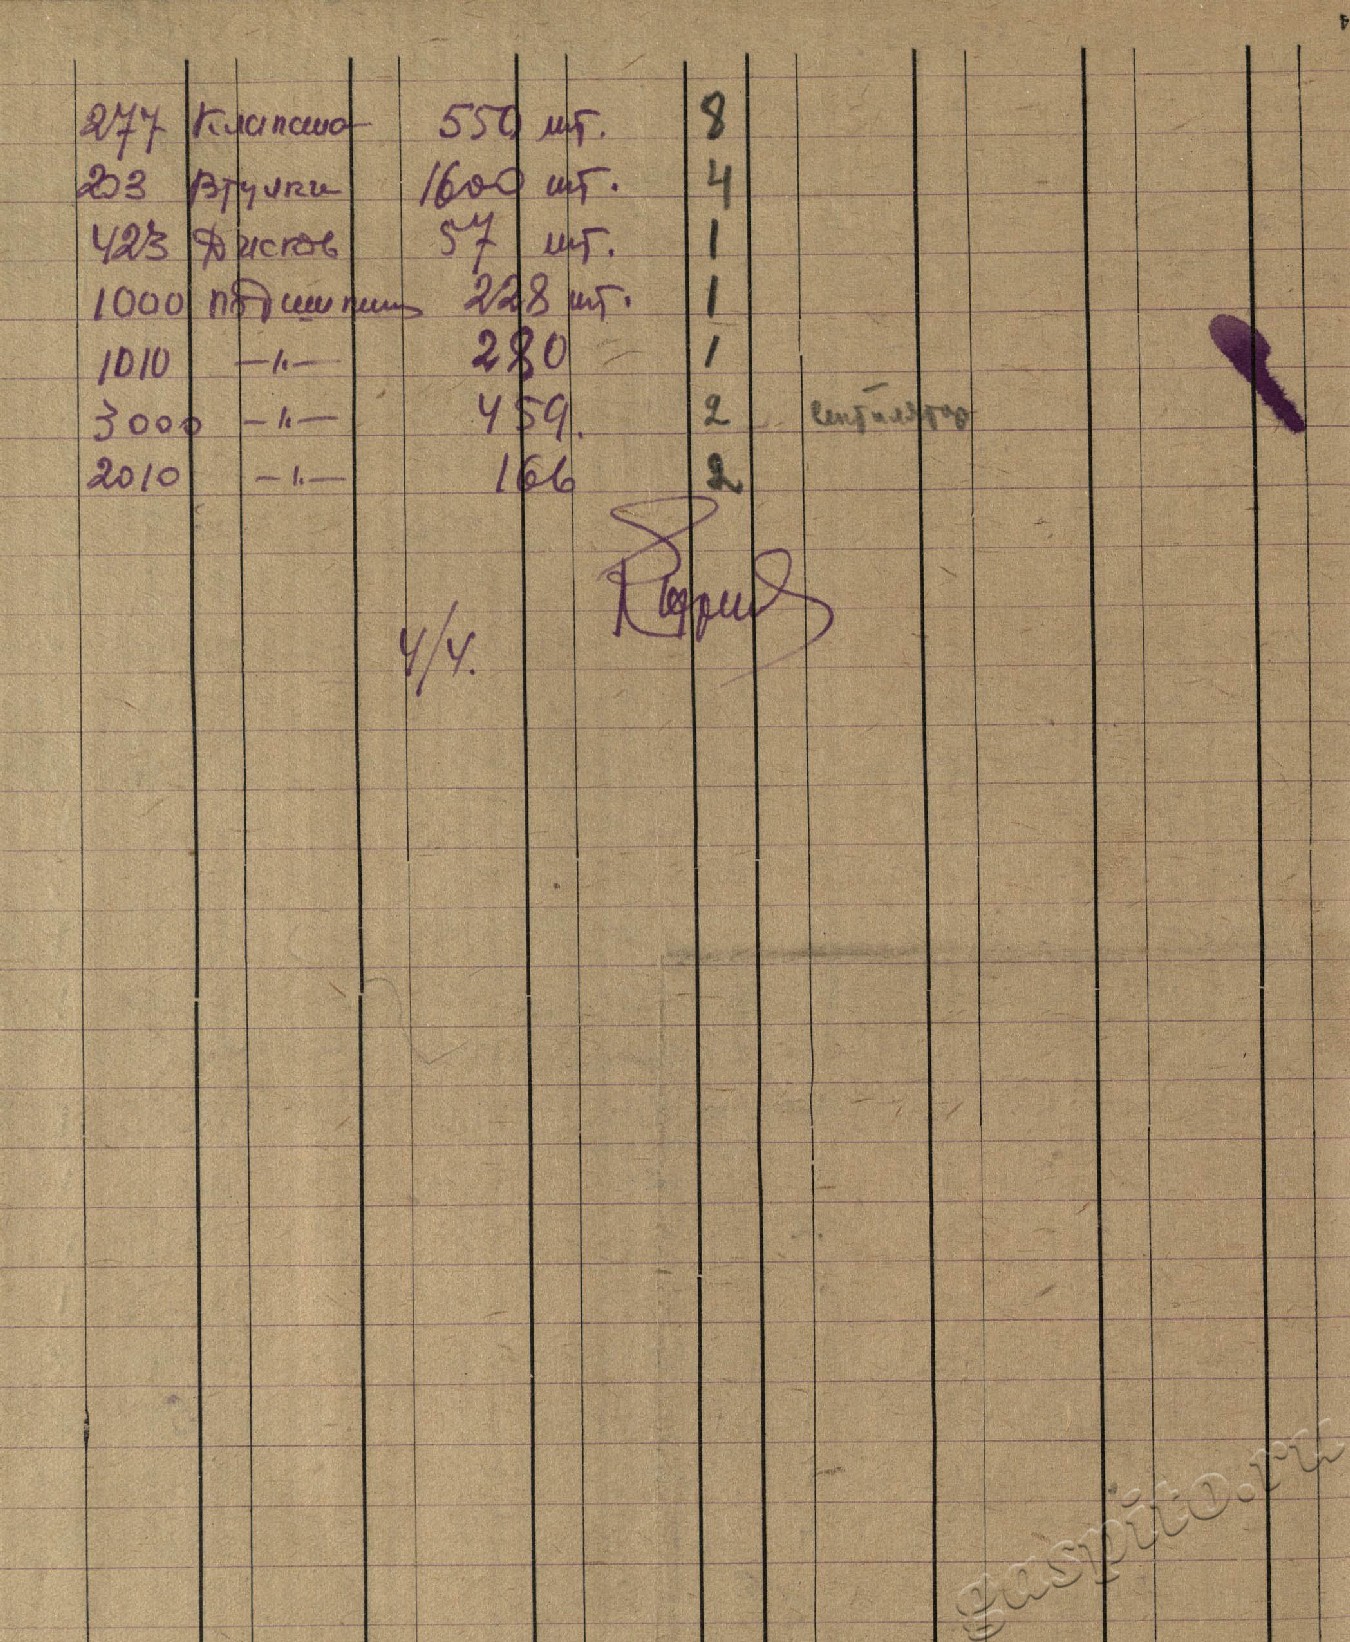 277 Клапана 550 шт. 8
203 Втулки 1600 шт. 4
423 Дисков 57 шт. 1
1000 подшипник 228 шт. 1
1010 —〃— 280 1
3000 —〃— 459. 2
2010 —〃— 166 2
4/4.
gaspito.ru